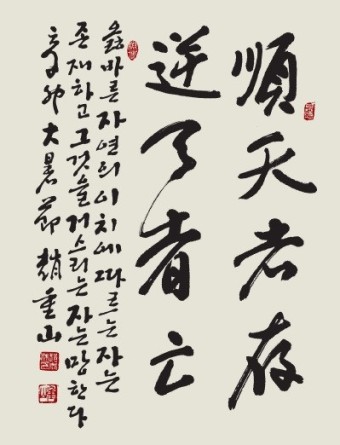 順天者存
逆天者亡
올바른 자연의 이치에 따르는 자는
존재하고 그것을 거스리는 자는 망한다
辛卯大暑節 趙重山